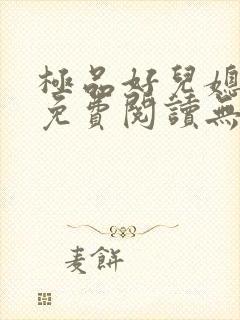 極品好兒媳
免費閱讀無
麦餅